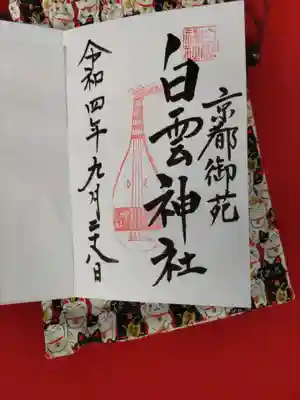 京都御苑
白雲神社
令和四年九月二十八日